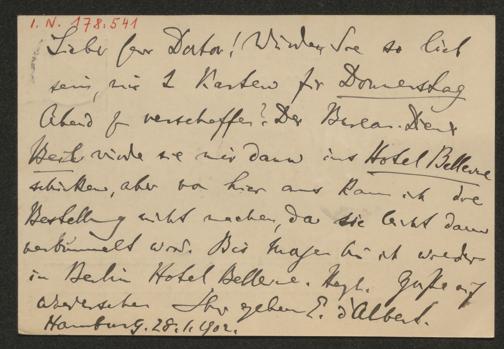 I. N. 178.541
Lieber Herr Doctor! Würden Sie so lieb
sein, mir 2 Karten für Donnerstag
Abend zu verschaffen? Der Bureau-Diener
würde sie mir dann ins Hotel Bellevue
schicken, aber von hier aus kann ich die
Bestellung nicht machen, da sie leicht dann
verbummelt wird. Bis morgen bin ich wieder
in Berlin Hotel Bellevue. Herzl. Grüße auf
Wiedersehen Ihr ergebener E. d'Albert.
Hamburg. 28.1.902.